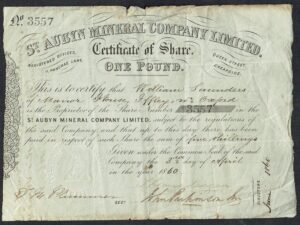 No. 3557
ST AUBYN MINERAL COMPANY LIMITED.
REGISTERED OFFICES,
LANE,
STREET,
Certificate of Share.
ONE POUND.
This is to certify that William Saunders
of Manor House, Iffley, nr Oxford
is the Proprietor of Share Number 3557 in the
ST AUBYN MINERAL COMPANY LIMITED, subject to the regulations of
the said Company and that up to this day there has been
paid in respect of such Share the sum of five shillings
Given under the Common Seal of the said
Company the 3rd day of April
in the year 1860
SECY